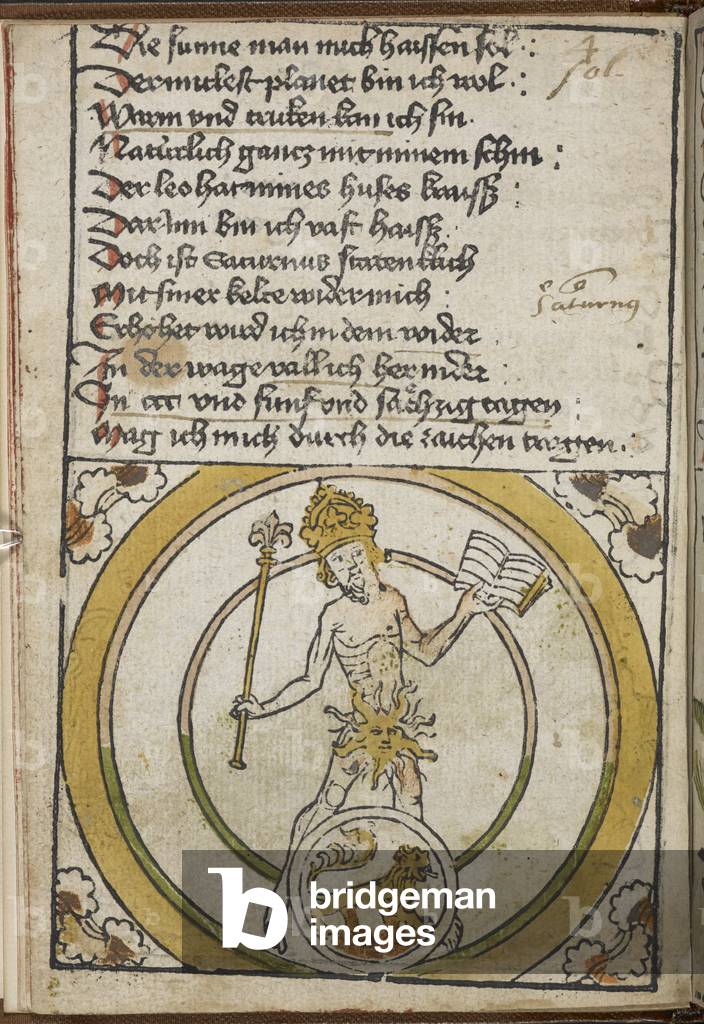 Die sunne man mich haissen sol :
Der mitlest planet bin ich wol :
Warm vnd truken kan ich sin .
Natùrlich gancz mit minem schin :
Der leo hat mines huses kraiss :
Darumm bin ich vast haiss .
Doch ist Saturnus stateneklich
Mit siner kelte wider mich :
Erhöhet wird ich in dem wider
In der wage vall ich her nider :
In ccc vnd funf vnd sächzig tagen :
Mag ich mich durch die zaichen tragen .
4
Sol
Saturnus
b
bridgeman
images